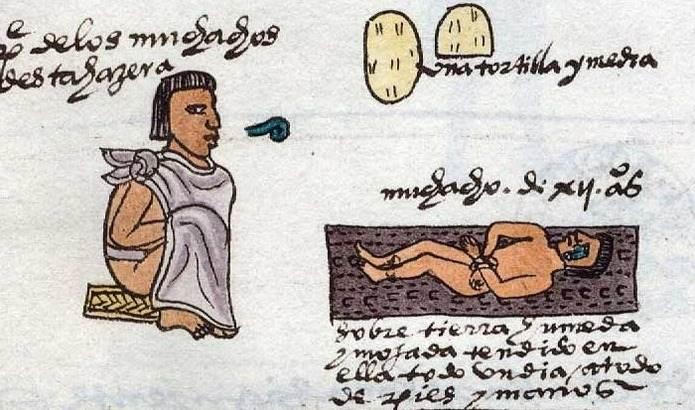 pe delos muchachos
desta hazera
una tortilla y media
muchacho. de xii. aos
sobre tierra y umeda
y mojada tendido en
ella todo un dia, atado
de pies y manos